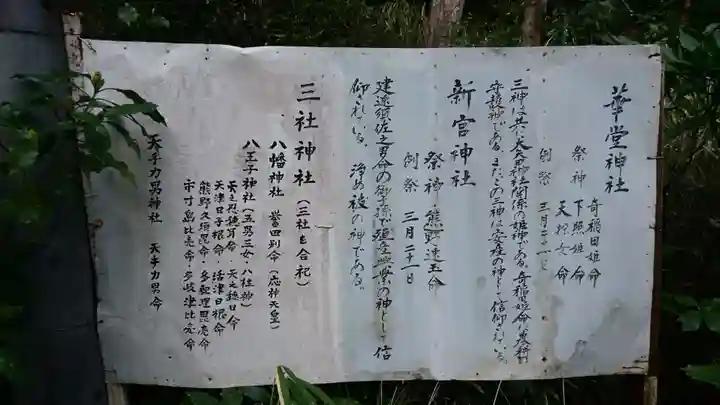 華堂神社
祭神 奇稲田姫命
下照姫命
天探女命
例祭 三月二十一日
三神は共に大矢神社関係の姫神である。奇稲田姫命は農耕
守護神である。またこの三神は安産の神として信仰されている。
新宮神社
祭神 熊野速玉命
例祭 三月二十一日
建速須佐之男命の御子孫で殖産興業の神として信
仰されている。浄め祓の神である。
三社神社(三社を合祀)
八幡神社 誉田別命(応神天皇)
八王子神社(五男三女八柱神)
天之忍穂耳命・天之穂日命
天津日子根命・活津日根命
熊野久須毘命・多紀理毘売命
市寸島比売命・多岐津比売命
天手力男神社 天手力男命